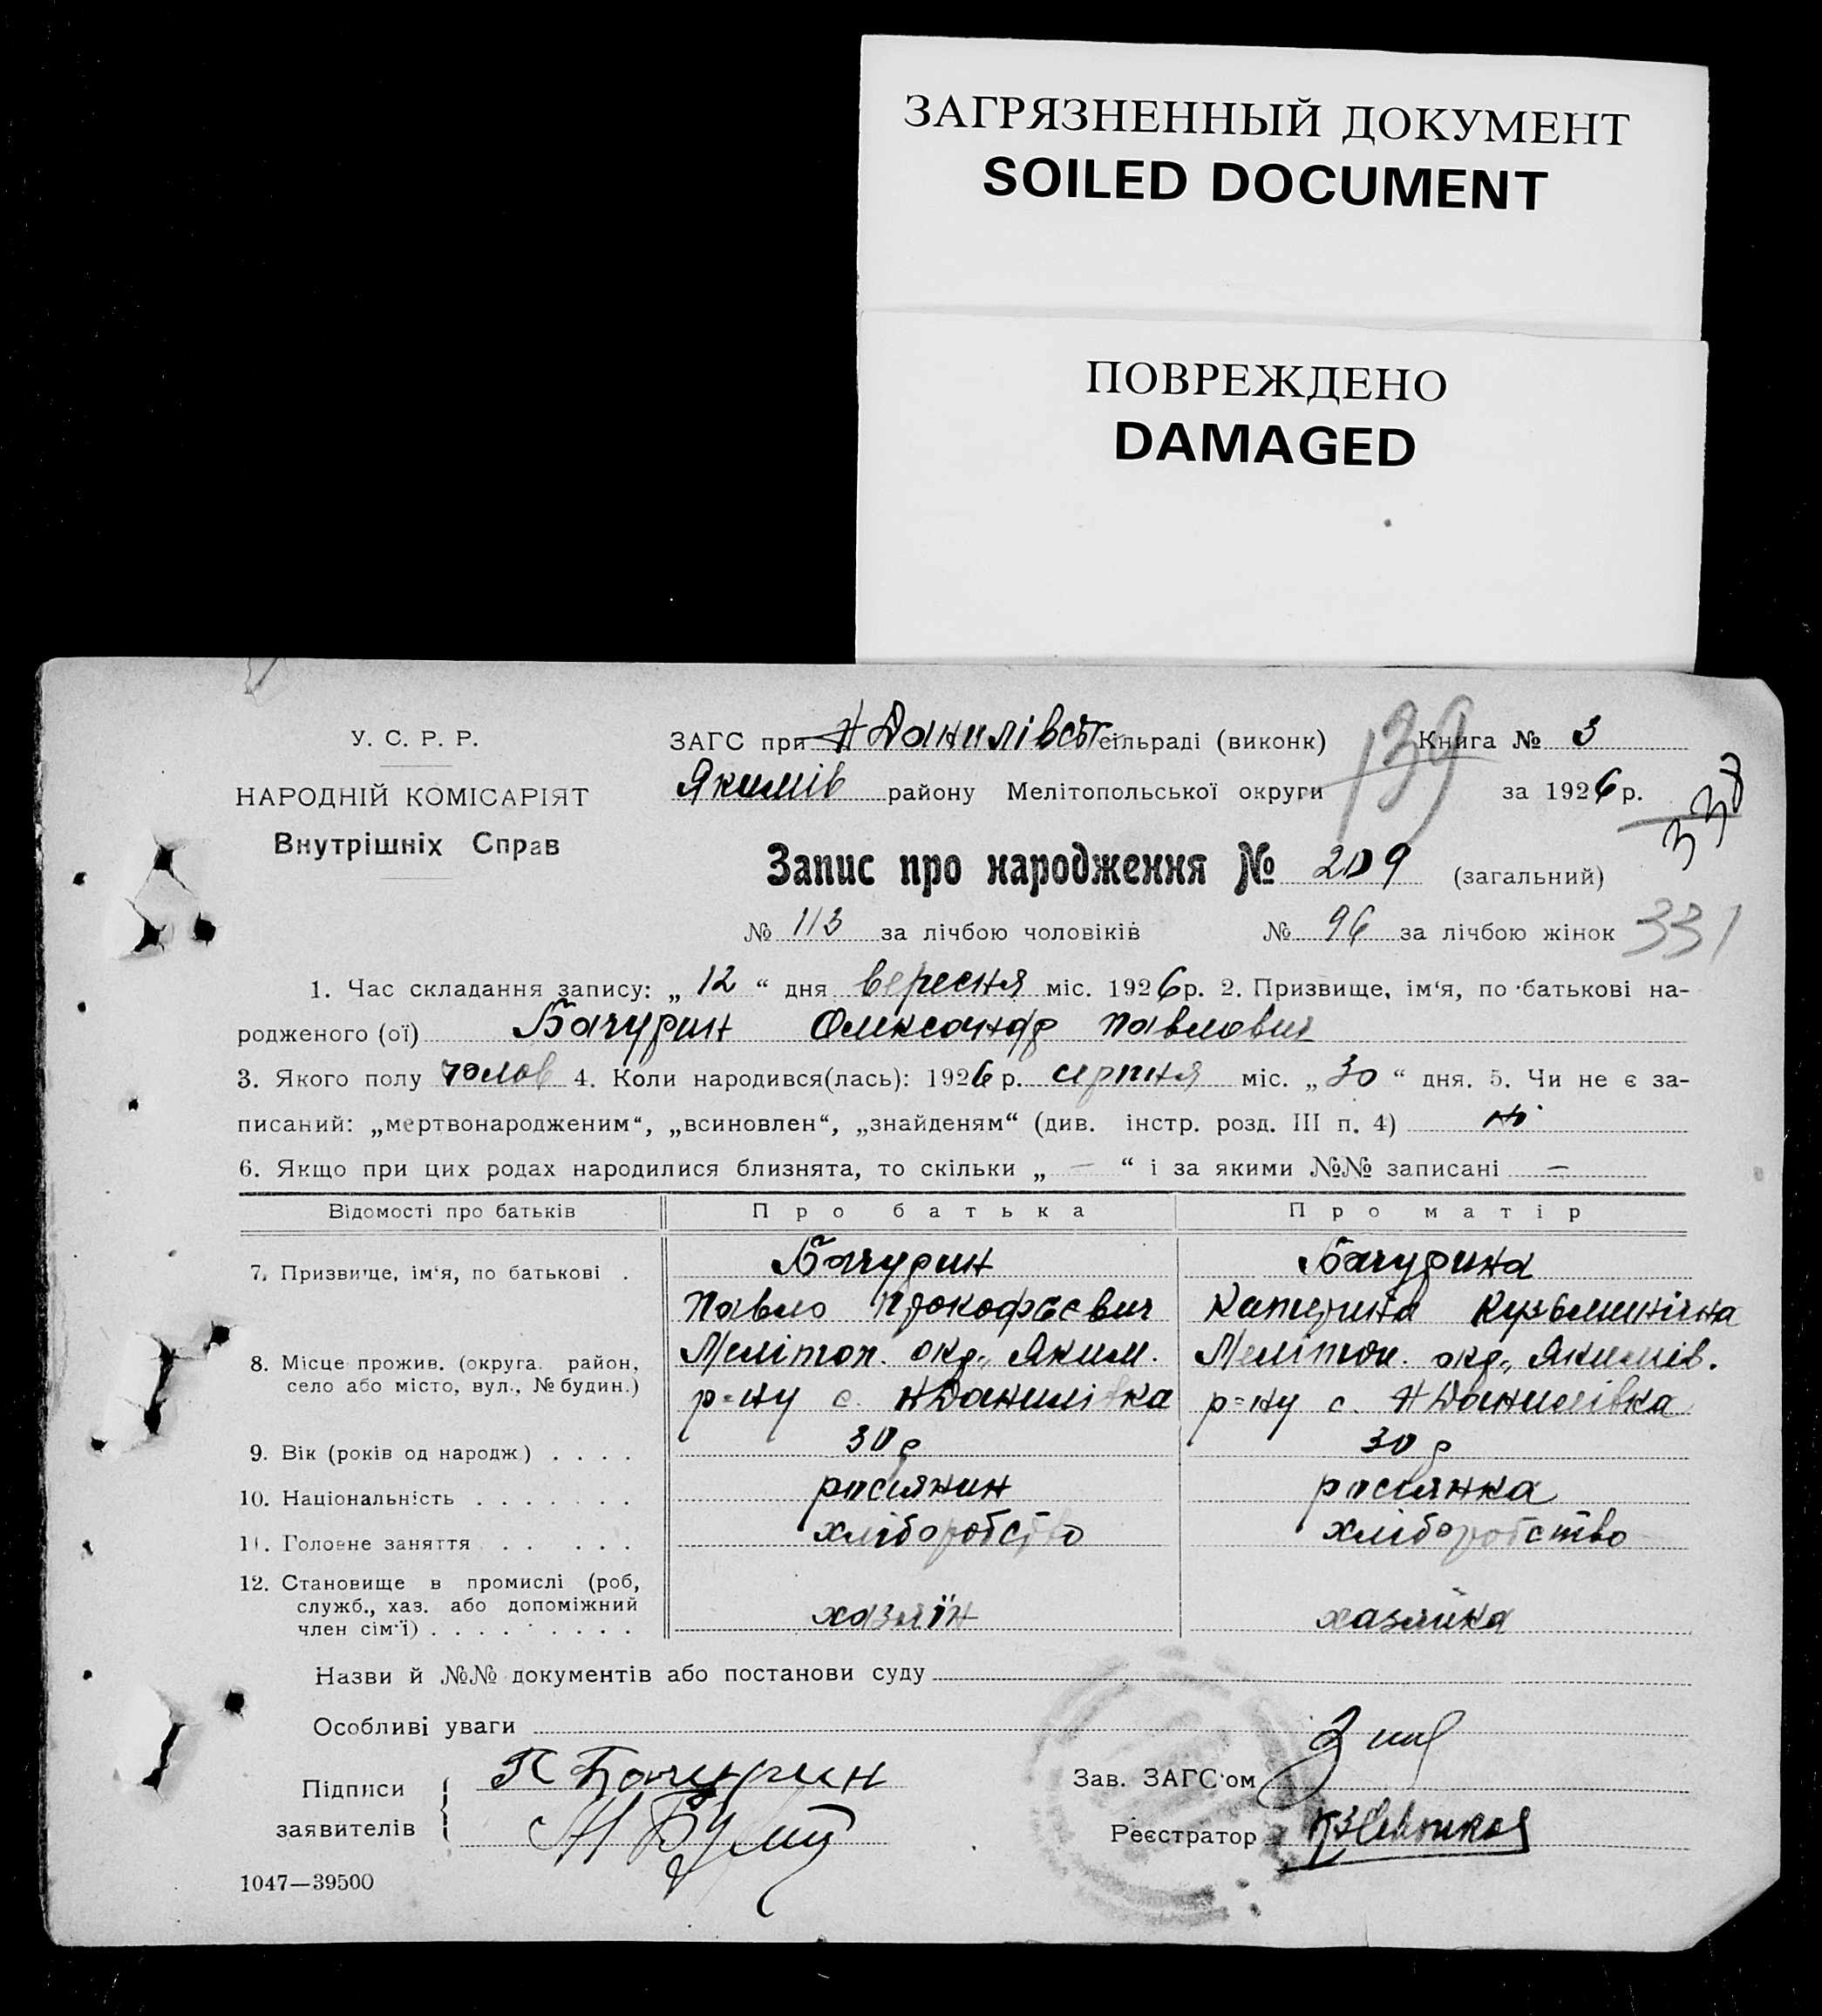 ЗАГРЯЗНЕННЫЙ ДОКУМЕНТ
SOILED DOCUMENT
ПОВРЕЖДЕНО
DAMAGED
У. С. Р. Р.
НАРОДНІЙ КОМІСАРІЯТ
Внутрішніх Справ
ЗАГС при Н Данилівськ сільраді (виконк) Книга № 3
139
Якимів району Мелітопольської округи за 1926 р.
338
Запис про народження № 209 (загальний)
№ 113 за лічбою чоловіків № 96 за лічбою жінок 331
1. Час складання запису: „ 12 “ дня вересня міс. 1926 р. 2. Призвище, ім‘я, по батькові на-
родженого (ої) Бачурин Олександр Павлович
3. Якого полу чолов 4. Коли народився(лась): 1926 р. серпня міс. „ 30 “ дня. 5. Чи не є за-
писаний: „мертвонародженим“, „всиновлен“, „знайденям“ (див. інстр. розд. III п. 4) ні
6. Якщо при цих родах народилися близнята, то скільки „ — “ і за якими №№ записані —
Відомості про батьків Про батька Про матір
7. Призвище, ім‘я, по батькові . Бачурин Бачурина
Павло Прокофієвич Катерина Кузьминична
8. Місце прожив. (округа. район, село або місто, вул., № будин.) Меліトоп. окр., Яким. Мелітоп. окр., Якимів.
р=ну с. Н Данилівка р=ну с. Н Данилівка
9. Вік (років од народж) . . . . 30 р 30 р
10. Національність . . . . . . . росіянин росіянка
11. Головне заняття . . . . . хліборобство хліборобство
12. Становище в промислі (роб, служб., хаз. або допоміжний член сім‘ї) . . . . . . . . . хазяїн хазяйка
Назви й №№ документів або постанови суду
Особливі уваги
Підписи П Бачурин Зав. ЗАГС‘ом
заявителів Реєстратор
1047—39500